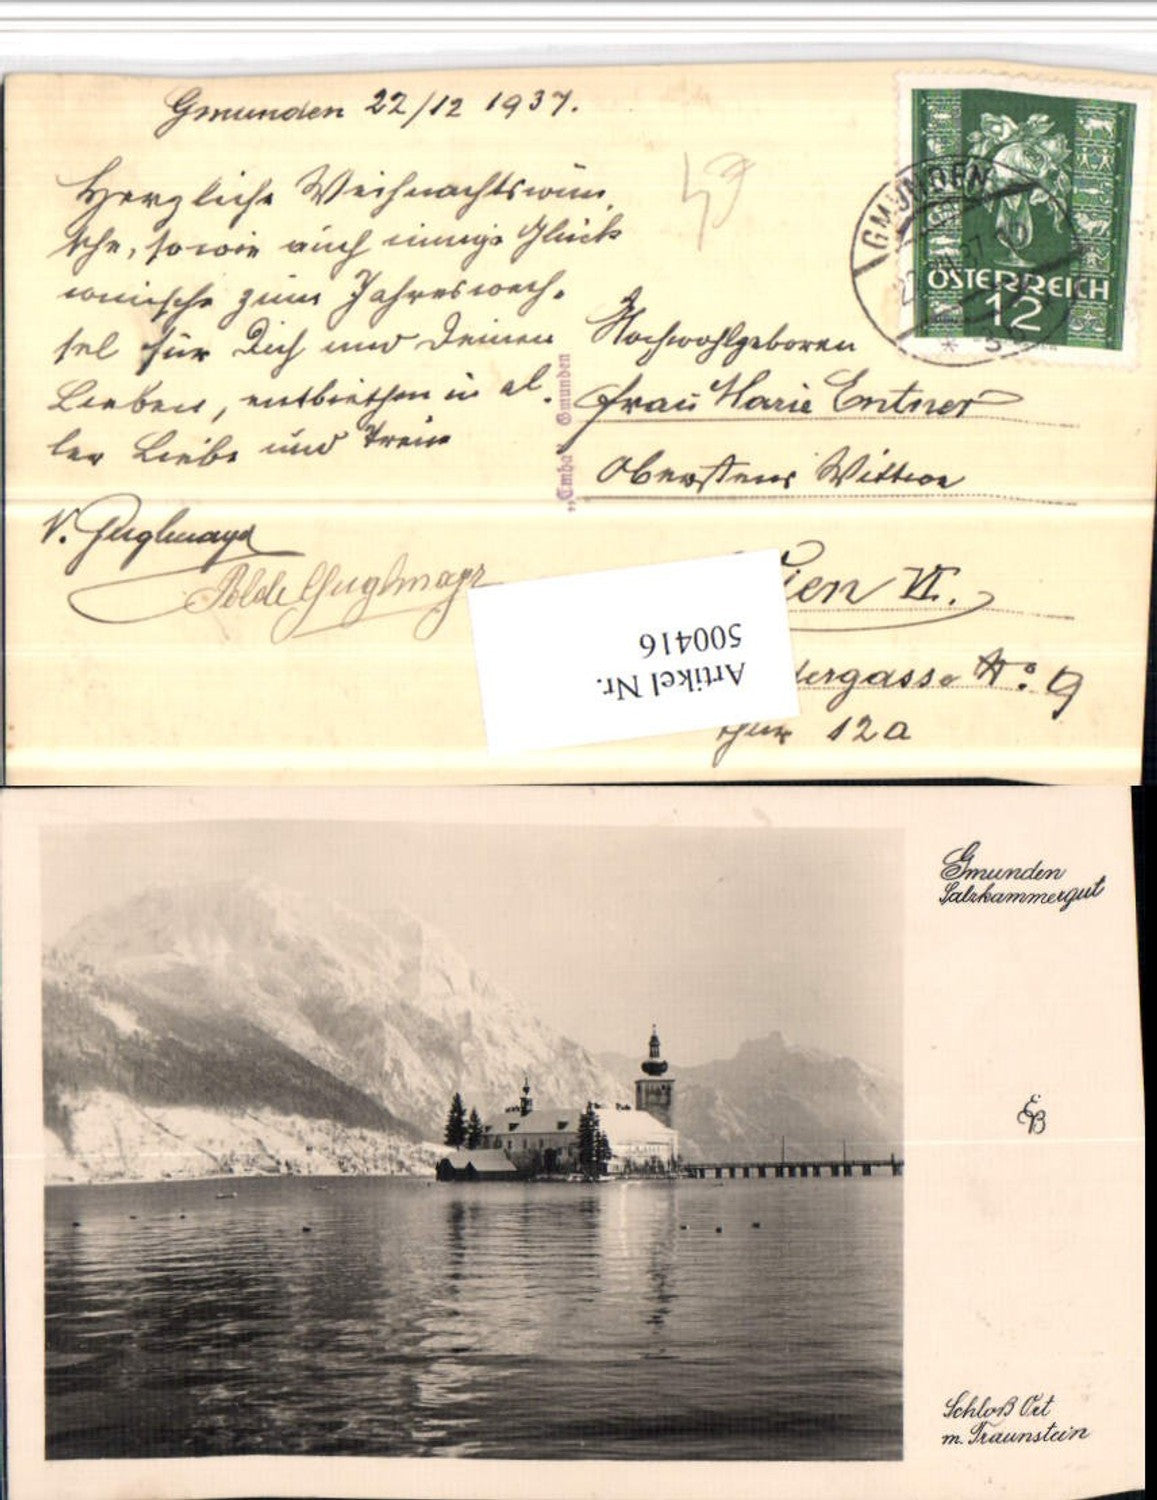 Gmunden 22/12 1937.
Herzliche Weihnachtswün,
sche, sowie auch innige Glück
wünsche zum Jahreswech-
sel für Dich und Deinen
Lieben, entbiethen in al-
ler Liebe und Treue
V. Guglmayr
Polde Guglmayr
GMUNDEN
ÖSTERREICH
12
Hochwohlgeboren
Frau Marie Entner
Oberstens Witwe
ien VI.
dergasse No 9
Thür 12a
"Emba" Gmunden
Artikel Nr.
500416
Gmunden
Salzkammergut
EB
Schloß Ort
m. Traunstein